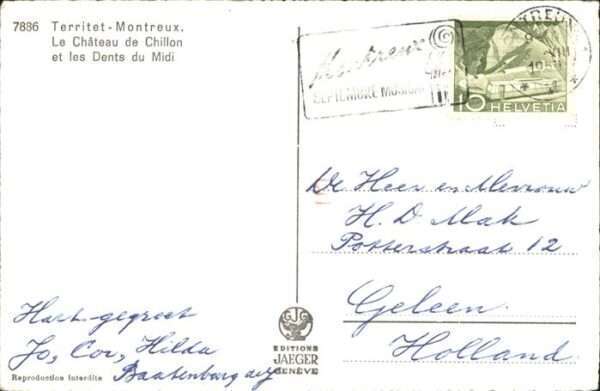 7886 Territet-Montreux.
Le Château de Chillon
et les Dents du Midi
Montreux
SEPTEMBRE MUSICAL
10 HELVETIA
De Heer en Mevrouw
H. D. Mak
Potterstraat 12
Geleen
Holland
Hart. gegroet
Jo, Cor, Hilda
EDITIONS
JAEGER
GENÈVE
Reproduction interdite